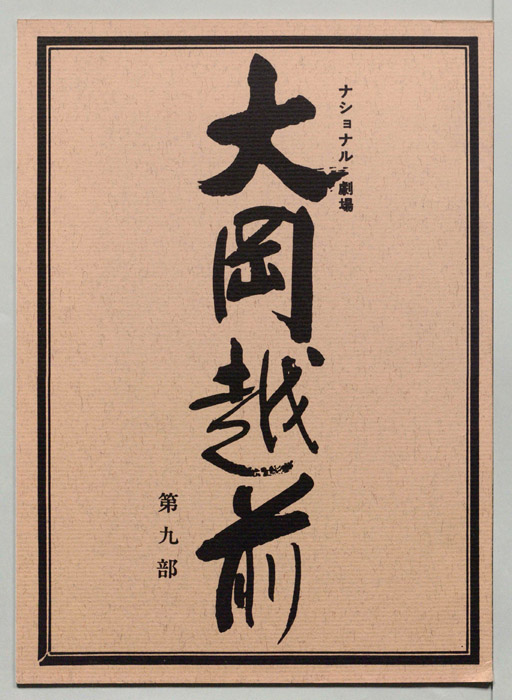 ナショナル劇場
大岡越前
第九部